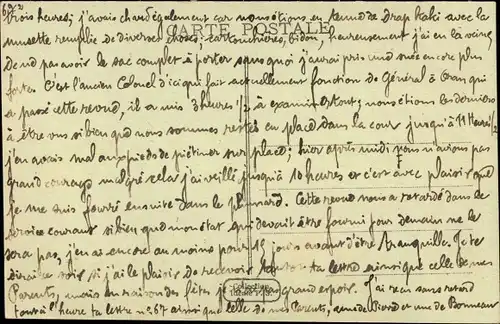 CARTE POSTALE
trois heures; j'avais chaud également car nous étions en tenue de drap kaki avec la
musette remplie de diverses choses; cartouchières, bidon; heureusement j'ai eu la veine
de ne pas avoir le sac complet à porter sans quoi j'aurai pris une suée encore plus
forte. C'est l'ancien Colonel d'ici qui fait actuellement fonction de Général à Oran qui
a passé cette revue, il a mis 3 heures 1/2 à examiner tout; nous étions les derniers
à être vus si bien que nous sommes restés en place dans la cour jusqu'à 11 heures 1/2
j'en avais mal aux pieds de piétiner sur place; hier après midi nous n'avions pas
grand courage malgré cela j'ai veillé jusqu'à 10 heures et c'est avec plaisir que
je me suis fourré ensuite dans le plumard. Cette revue nous a retardé dans le
service courant si bien que mon état qui devait être fourni pour demain ne le
sera pas, j'en ai encore au moins pour 15 jours avant d'être tranquille. Je te
dirai ce soir si j'ai le plaisir de recevoir tantôt ta lettre ainsi que celle de mes
Parents, mais en raison des fêtes je n'ai pas grand espoir. J'ai reçu sans retard
tout à l'heure ta lettre n° 67 ainsi que celle de mes Parents, une de Pierre et une de Bonneau